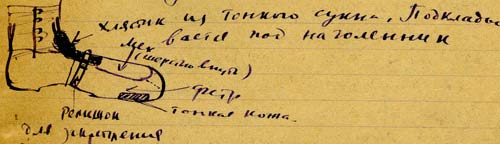 хлястик из тонкого сукна. Подклады-
вается под наголенник
Мех
(шерстью внутрь)
фетр
тонкая кожа.
ремешок
для закрепления